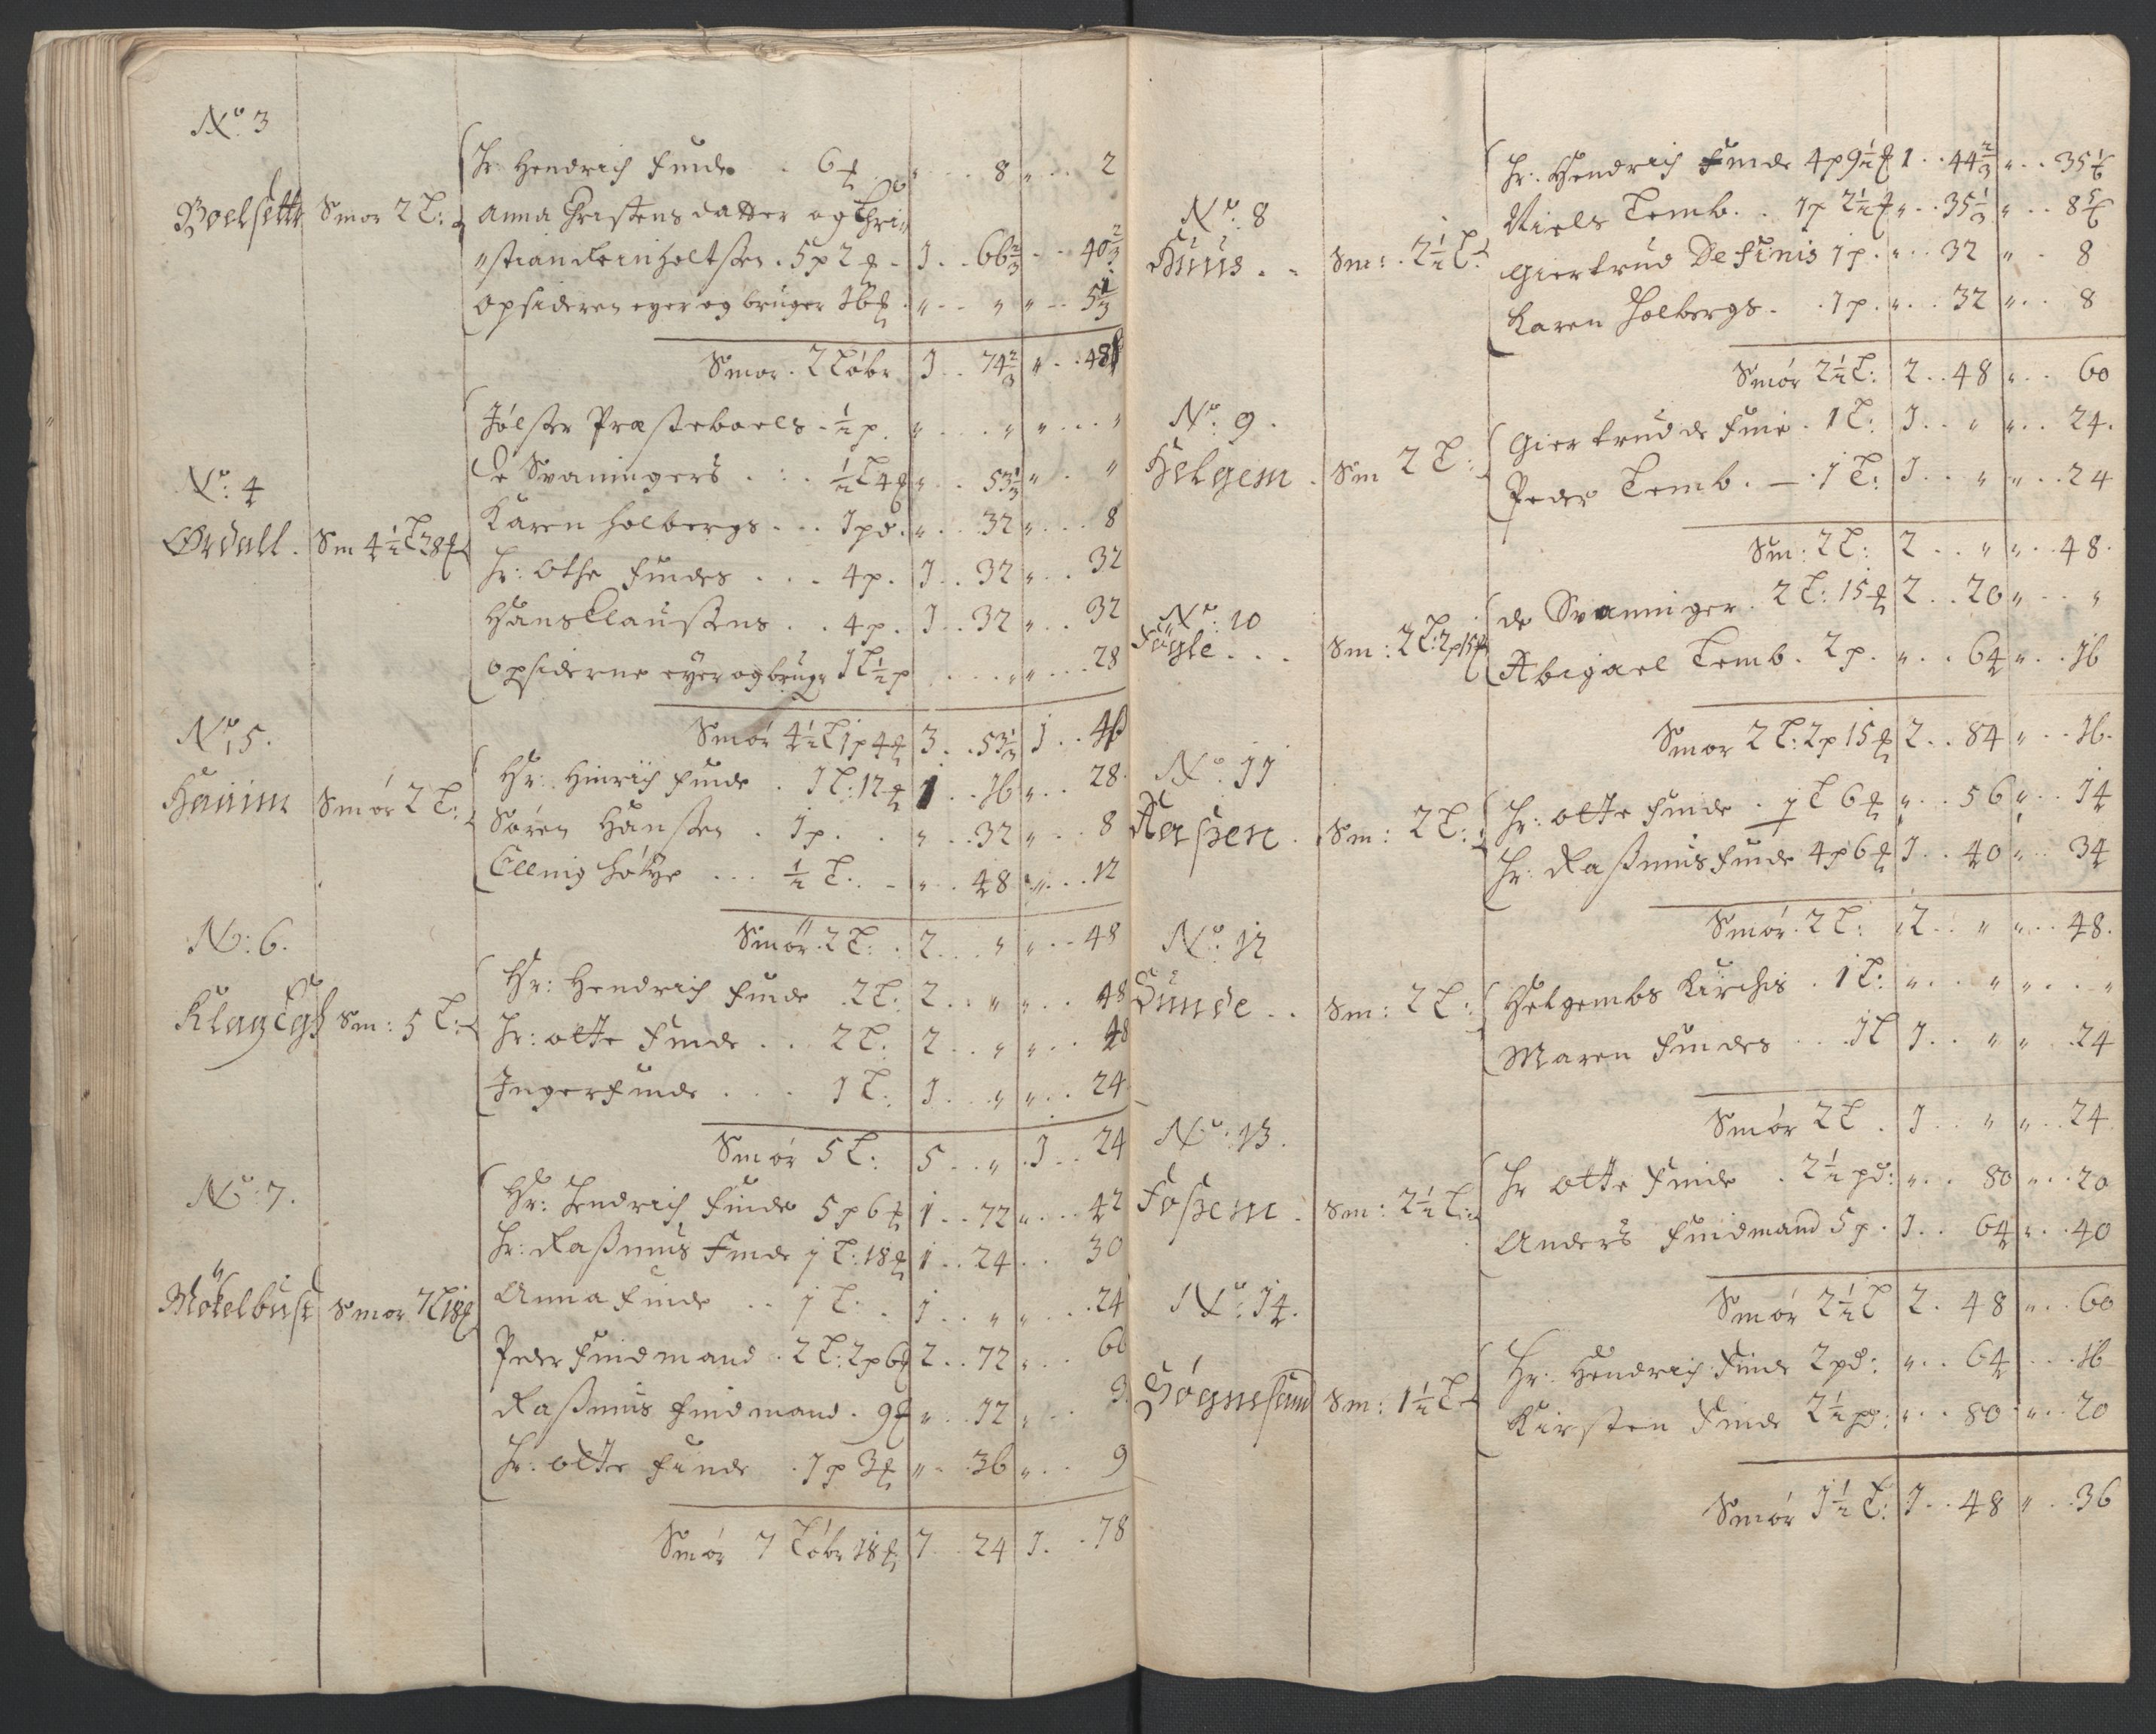 No 3
Boelsette Smør 2 T:
Hr Hendrich Finde . . 6 ℔ " . . 8 " . . 2
Anna Christens datter og Chri„
„stian Reinholtsen . 5 p 2 ℔ . 1 . . 66 2/3 . . 40 2/3
Opsideren eyer og bruger 16 ℔ . " . . " " . . 5 1/3
Smør . 2 Tøbr 1 . . 74 2/3 " . . 48
No: 4
Ørdall . Sm 4 1/2 T 28 ℔
Jølster Præsteboels . 1/2 p . " . . " " . . "
De Svaningers . : . 1/2 T 4 ℔ " . . 53 1/3 " . "
Karen Holbergs . . . 1 pd . " . . 32 " . . 8
Hr: Othe Findes . . . 4 p . 1 . . 32 " . . 32
Hans Claussens . . 4 p . 1 . . 32 " . . 32
Opsiderne eyer og bruge 1 T 1/2 p . . . " " . . 28
Smør 4 1/2 T 1 p 4 ℔ 3 . . 53 1/3 1 . . 4
No 5 .
Smør 2 T:
Hr: Hinrich Finde . 1 T: 12 ℔ 1 . . 16 " . . 28
Søren Hanssen . 1 p . . " . . 32 " . . 8
Elling . . . 1/2 T . - " . . 48 " . . 12
Smør . 2 T: . 2 . . " " . . 48
No: 6 .
Klagegh Sm: 5 T:
Hr: Hendrich Finde . 2 T: 2 . . " " . . 48
Hr: Otte Finde . . . 2 T: 2 . . " " . . 48
Inger Finde . . . 1 T: 1 . . " " . . 24
Smør 5 T: 5 . . " . 1 . . 24
No: 7 .
Møkelbust Smør 7 T 18 ℔
Hr: Hendrich Finde 5 p 6 ℔ 1 . . 72 " . . 42
Hr: Rasmus Finde 1 T: 18 ℔ 1 . . 24 . . 30
Anna Finde . . 1 T: . 1 . . " " . . 24
Peder Findmand . 2 T: 2 p 6 ℔ 2 . . 72 " . . 66
Rasmus Findmand . 9 ℔ " . . 12 " . . 3
Hr: Otte Finde . 1 p 3 ℔ " . . 36 " . . 9
Smør 7 Tøbr 18 ℔ 7 . . 24 1 . . 78
No: 8
Huus . . Sm: . 2 1/2 T:
Hr: Hendrich Finde 4 p 9 1/2 ℔ 1 . . 44 2/3 " . . 35 1/6
Niels Temb . . 1 p 2 1/2 ℔ " . . 35 1/3 " . . 8 5/6
Giertrud De Finis 1 p . " . . 32 " . 8
Karen Holbergs . . 1 p . " . . 32 " . . 8
Smør 2 1/2 T: 2 . . 48 " . . 60
No: 9 .
Helgem . Sm 2 T:
Giertrud de Finè . 1 T: 1 . . " " . . 24 .
Peder Temb . — . 1 T: 1 . . " " . . 24
Sm: 2 T: 2 . . " " . . 48 .
No: 10
Føgle . . . Sm: 2 T: 2 p 15 ℔
de Svanniger . 2 T: 15 ℔ 2 . . 20 " . . "
Abigael Temb . 2 p . " . . 64 " . . 16
Smør 2 T: 2 p 15 ℔ 2 . . 84 " . . 16 .
No: 11
Aassen . Sm: 2 T:
Hr: Otte Finde . 1 T 6 ℔ " . . 56 " . . 14
Hr: Rasmus Finde 4 p 6 ℔ 1 . . 40 " . . 34
Smør . 2 T: 2 . . " " . . 48 .
No: 12
Sunde . . Sm: 2 T:
Helgembs Kirchis . 1 T: " . . " " . . "
Maren Findes . . . 1 T 1 . . " " . . 24
Smør 2 T . 1 . . " " . . 24
No: 13 .
Fossene . Sm: 2 1/2 T:
Hr Otte Finde . 2 1/2 pd: " . . 80 " . . 20
Anders Findmand 5 p . 1 . . 64 " . . 40
Smør 2 1/2 T 2 . 48 " . . 60
No: 14 .
Søgnesand Sm: 1 1/2 T
Hr: Hendrich Finde 2 pd: " . . 64 . . . 16
Kirsten Finde 2 1/2 pd: " . . 80 " . . 20
Smør 1 1/2 T: 1 . . 48 " . . 36